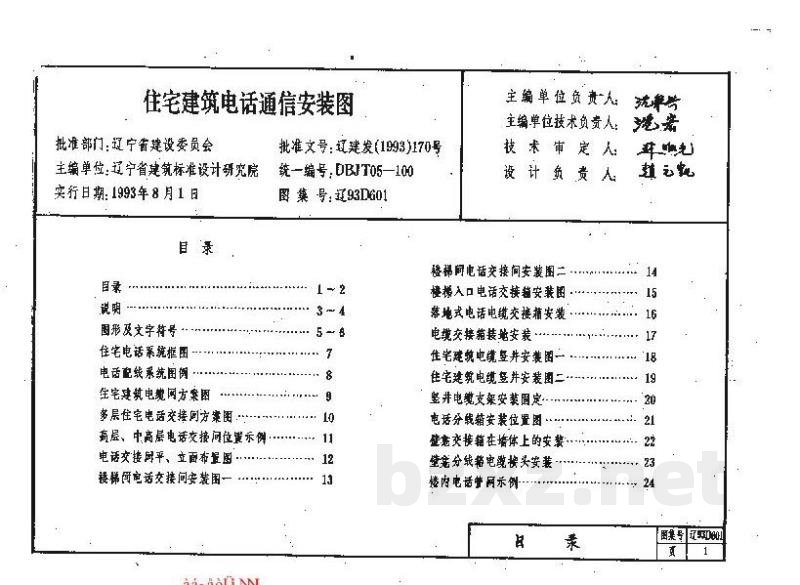 住宅建筑电话通信安装图
批准部门:辽宁省建设委员会 批准文号:辽建发(1993)170号
主编单位:辽宁省建筑标准设计研究院 统一编号:DBJT05—100
实行日期:1993年8月1日 图集号:辽93D601
主编单位负责人:
主编单位技术负责人:
技术审定人:
设计负责人:
目录
目录 1～2
说明 3～4
图形及文字符号 5～6
住宅电话系统框图 7
电话配线系统图例 8
住宅建筑电缆网方案图 9
多层住宅电话交接间方案图 10
高层、中高层电话交接间位置示例 11
电话交接间平、立面布置图 12
楼梯间电话交接间安装图一 13
楼梯间电话交接间安装图二 14
楼梯入口电话交接箱安装图 15
落地式电话电缆交接箱安装 16
电缆交接箱接地安装 17
住宅建筑电缆竖井安装图一 18
住宅建筑电缆竖井安装图二 19
竖井电缆支架安装固定 20
电话分线箱安装位置图 21
壁龛交接箱在墙体上的安装 22
壁龛分线箱电缆接头安装 23
楼内电话管网示例 24
bzxz.net
目录
图集号 辽93D601
页 1